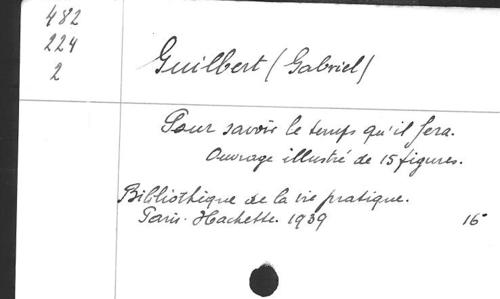 482
224
2
Guilbert (Gabriel)
Pour savoir le temps qu'il fera.
Ouvrage illustré de 15 figures.
Bibliothèque de la vie pratique.
Paris. Hachette. 1939 16°